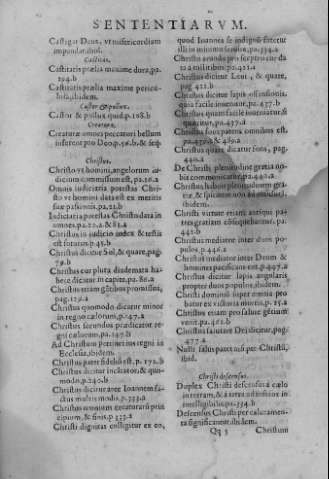 SENTENTIARVM.
Castigat Deus, vt misericordiam
impendat. ibid.
Castitas.
Castitatis prælia maxime dura, pa.
194.b
Castitatis prælia maxime pericu-
losa, ibidem.
Castor & pollux.
Castor & pollux quid. p.108.b
Creatura.
Creaturæ omnes peccatori bellum
inferent pro Deo. p.56.b. & seq.
Christus.
Christo vt homini, angelorum iu-
dicium commissum est, pa.26.a
Omnis iudiciaria potestas Chri-
sto vt homini data est ex meritis
suæ passionis, pa.22.b
Iudiciaria potestas Christo data in
omnes. pa.20.a & 81.a
Christus in iudicio iudex & testis
est futurus. p.45.b
Christus dicitur Sol, & quare, pag.
79.b
Christus cur plura diademata ha-
bere dicitur in capite, pa.86.a
Christus etiam gētibus promissus,
pag.129.a
Christus quomodo dicatur minor
in regno cælorum, p.147.a
Christus secundus prædicator re-
gni cælorum, pa.147.b
Ad Christum pertinet ius regni in
Ecclesia, ibidem.
Christus pater fidelis est. p. 172.b
Christus dicitur incitator, & quo-
modo, p.240.b
Christus dicitur ante Ioannem fa-
ctus multis modis, p.333.a
Christus omnium creaturarū prin-
cipium, & finis, p.333.a
Christi dignitas colligitur ex eo,
quod Ioannes se indignū existi
illi in minimo seruire, pa.334.a
Christus
da in tribulatione. pa.421.a
Christus dicitur Leui, & quare,
pag.421.b
Christus dicitur lapis offensionis,
quia facile inuenitur, pa.437.b
Christus quam facile inuenitur, si
quæratur, pa.437.a
Christus fons patens omnibus est.
pa.437.b & 489.a
Christus quare dicatur fons, pag.
440.a
De Christi plenitudine gratia no-
bis communicatur, pa.440.a
Christus habuit plenitudinem gra-
tiæ,
441.a
Christi virtute etiam antiqui pa-
tres gratiam cōsequebantur. pa.
441.b
Christus mediator inter duos po-
pulos p.446.a
Christus mediator inter Deum &
hominem pacificans est. p.447.a
Christus dicitur lapis angularis
propter duos populos, ibidem.
Christi dominiū super omnia pro
batur ex victoria mortis, p. 15.a
Christus etiam pro salute gētium
venit, pa.461.b
Christus
477.a
Nulli salus patet nisi per Christū,
ibid.
Christi descensus.
Duplex Christi descensus à cælo
in terram, & à terra ad inferos in-
intelligibilis, pa.334.b
Descensus Christi per calceamen-
ta significantur. ibidem.
Qq 3 Christum